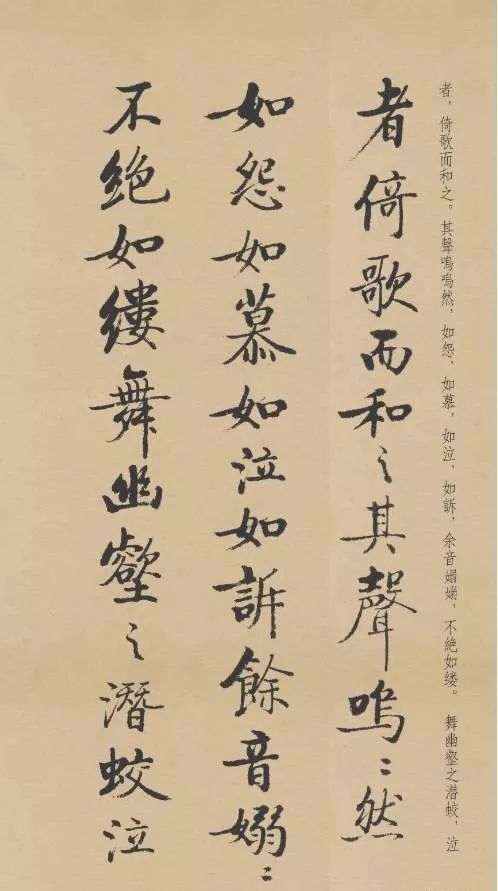 者，倚歌而和之。其聲嗚嗚然，如怨，如慕，如泣，如訴，余音嫋嫋，不絶如缕。舞幽壑之潜蛟，泣
者倚歌而和之其聲嗚〻然
如怨如慕如泣如訴餘音嫋〻
不絶如縷舞幽壑之潛蛟泣